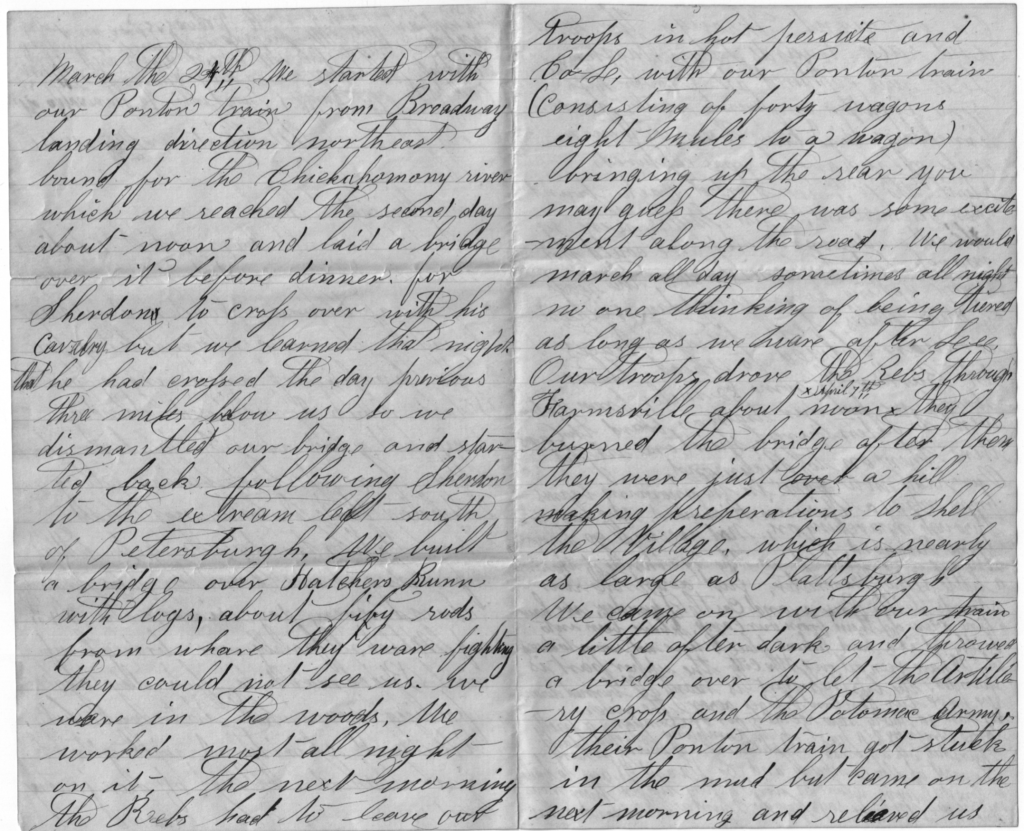 March the 24th We started with
our Ponton train from Broadway
landing direction northeast
bound for the Chickahomony river
which we reached the second day
about noon and laid a bridge
over it before dinner. for
Sherdon to cross over with his
Cavalry but we learned that night
that he had crossed the day previous
three miles below us so we
dismantled our bridge and star-
ted back following Sherdon
to the extream left south
of Petersburgh. We built
a bridge over Hatchers Runn
with logs, about fifty rods
from whare they ware fighting
they could not see us. we
ware in the woods. We
worked most all night
on it, the next morning
the Rebs had to leave our
troops in hot persuite and
Co L, with our Ponton train
(Consisting of forty wagons
eight Mules to a wagon)
bringing up the rear you
may guess there was some excite
-ment along the road. We would
march all day sometimes all night
no one thinking of being tiered
as long as we ware after Lee,
Our troops drove the Rebs through
x April 7th
Farmsville about noon x they
burned the bridge after them
they were just over a hill
making preperations to shell
the Village, which is nearly
as large as Plattsburgh
We came on with our train
a little after dark and throwed
a bridge over to let the Artille
-ry cross and the Potomac Army.
their Ponton train got stuck
in the mud but came on the
next morning and releaved us